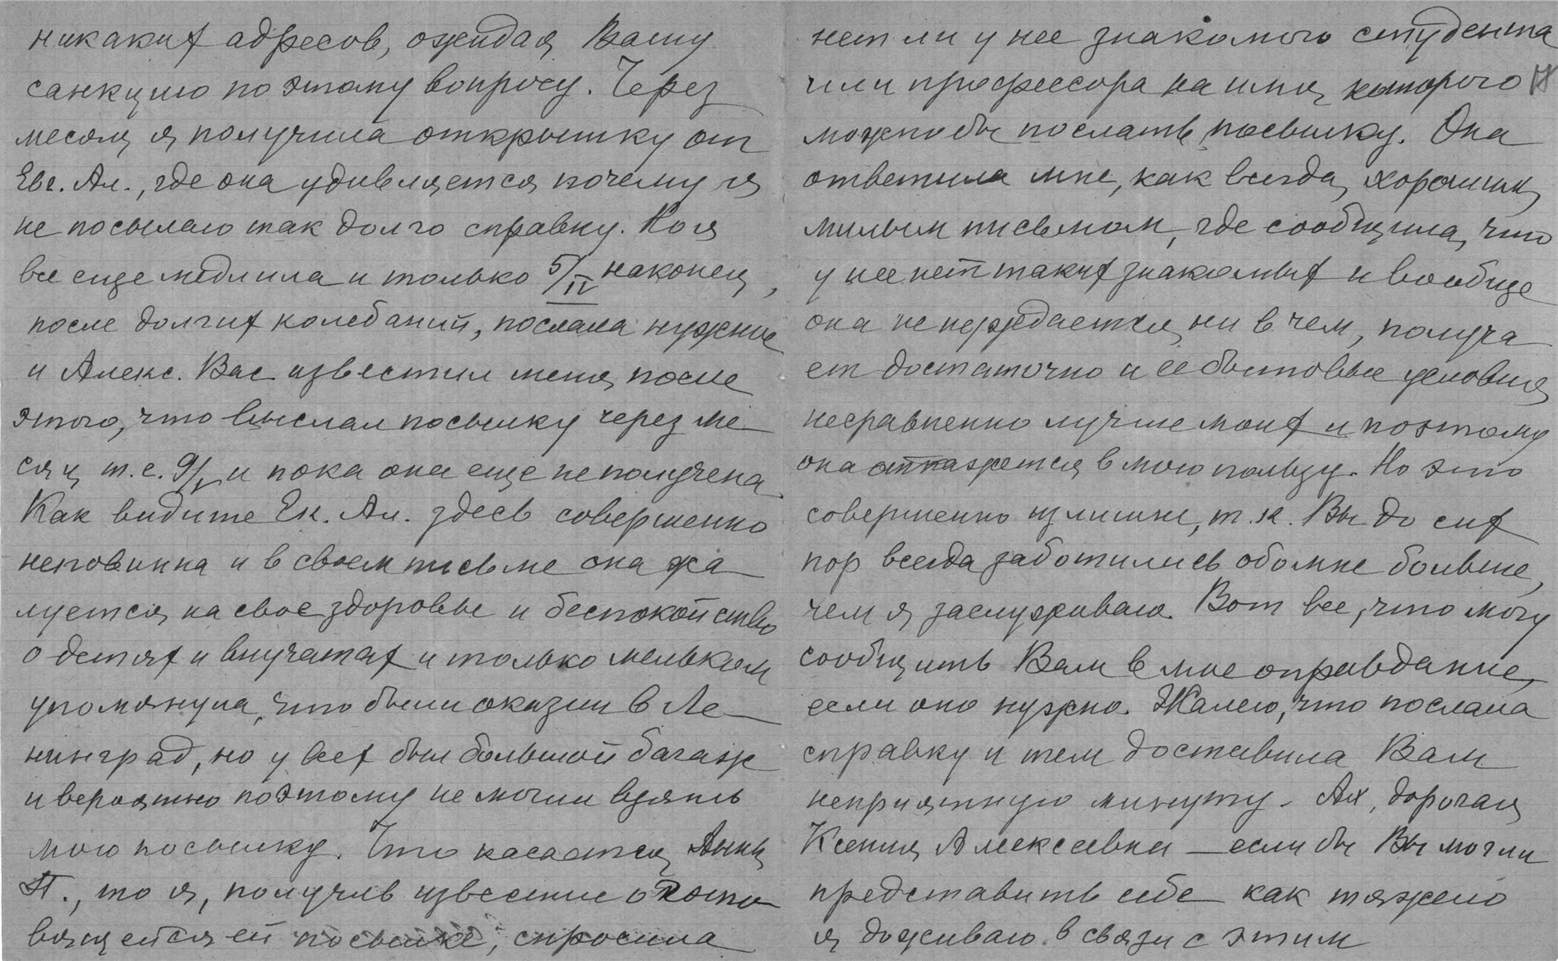 никаких адресов, ожидая Вашу
санкцию по этому вопросу. Через
месяц я получила открытку от
Евг. Ал., где она удивляется почему я
не посылаю так долго справку. Но я
все еще медлила и только 5/IV наконец,
после долгих колебаний, послала нужное
и Алекс. Вас известил меня, после
этого, что выслал посылку через ме-
сяц т.е. 9/V и пока она еще не получена.
Как видите Ек. Ал. здесь совершенно
неповинна и в своем письме она жа-
луется на свое здоровье и беспокойство
о детях и внучатах и только мельком
упомянула, что были оказии в Ле-
нинград, но у всех был большой багаж
и вероятно поэтому не могли взять
мою посылку. Что касается Анны
П., то я, получив известие о гото-
вящейся ей посылке, спросила
нет ли у нее знакомого студента
или профессора на имя которого
можно бы послать посылку. Она
ответила мне, как всегда, хорошим,
милым письмом, где сообщила, что
у нее нет таких знакомых и вообще
она не нуждается, ни в чем, получа
ет достаточно и ее бытовые условия
несравненно лучше моих и поэтому
она откажется в мою пользу. Но это
совершенно излишне, т.к. Вы до сих
пор всегда заботились обо мне больше,
чем я заслуживаю. Вот все, что могу
сообщить Вам в мое оправдание,
если оно нужно. Жалею, что послала
справку и тем доставила Вам
неприятную минуту. Ах, дорогая
Ксения Алексеевна — если бы Вы могли
представить себе как тяжело
я доживаю в связи с этим